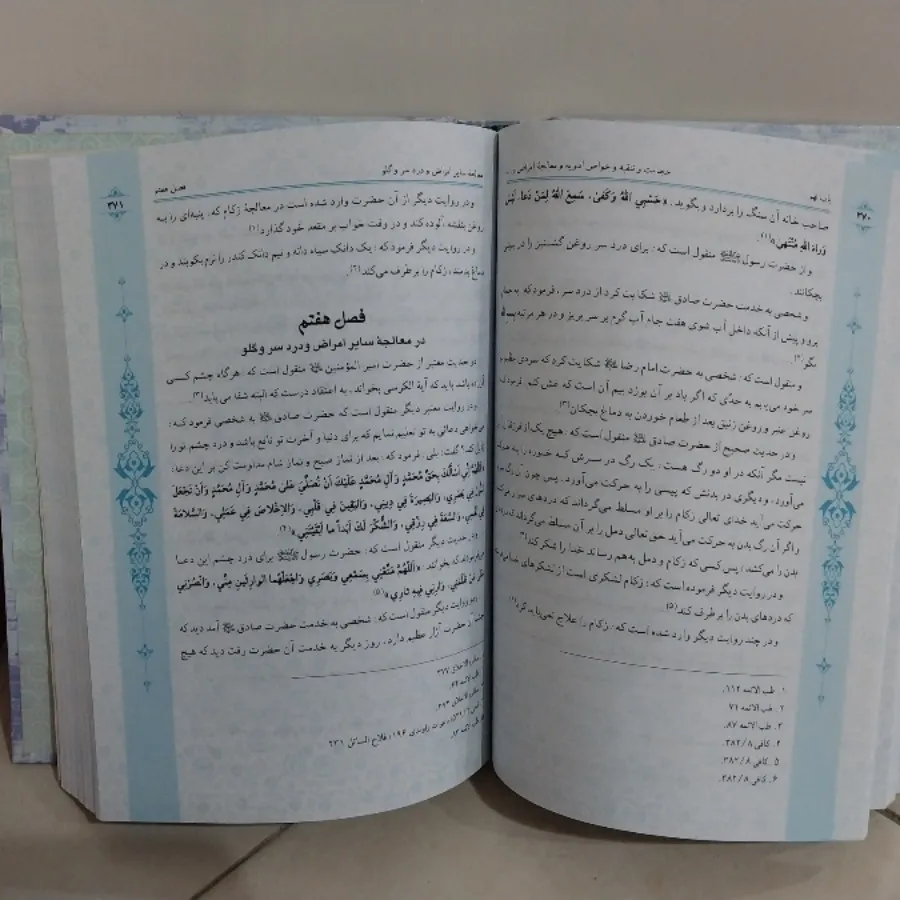 باب نهم
حجامت و تنقیه و خواص ادویه و معالجهٔ امراض و...
۳۷۰
صاحب خانه آن سنگ را بردارد و بگوید. «حَسْبِيَ اللّٰهُ وَكَفىٰ، سَمِعَ اللّٰهُ لِمَنْ دَعا، لَيْسَ
وَراءَ اللّٰهِ مُنْتَهىٰ»(۱).
و از حضرت رسول ﷺ منقول است که: برای درد سر روغن گشنیز را در بینی
بچکانند.
و شخصی به خدمت حضرت صادق شکایت کرد از درد سر، فرمود که به حمام
برو و پیش از آنکه داخل آب شوی هفت جام آب گرم بر سر بریز و در هر مرتبه
بگو(۲).
و منقول است که: شخصی به حضرت امام رضا شکایت کرد که سردی عظیم در
سر خود می‌یابم به حدّی که اگر باد بر آن بوزد بیم آن است که غش کنم. فرمود که:
روغن عنبر و روغن زنبق بعد از طعام خوردن به دماغ بچکان(۳).
و در حدیث صحیح از حضرت صادق منقول است که: هیچ یک از فرزندان
نیست مگر آنکه در او دو رگ هست: یک رگ در سرش که خوره را به حرکت
می‌آورد، و دیگری در بدنش که پیسی را به حرکت می‌آورد. پس چون آن رگ سر
حرکت می‌آید خدای تعالی زکام را بر او مسلط می‌گرداند که دردهای سر
و اگر آن رگ بدن به حرکت می‌آید حق تعالی دمل را بر آن مسلط می‌گرداند که
بدن را می‌کشد؛ پس کسی که زکام و دمل به‌هم رساند خدا را شکر کند(۴).
و در روایت دیگر فرموده است که: زکام لشکری است از لشکرهای خدا
که دردهای بدن را برطرف کند(۵).
و در چند روایت دیگر وارد شده است که: زکام را علاج نمی‌باید کرد(۶)
۱. طب الائمه ۱۱۲.
۲. طب الائمه ۷۱
۳. طب الائمه ۸۷.
۴. کافی ۸/ ۳۸۲.
۵. کافی ۸/ ۳۸۲.
۶. کافی ۸/ ۳۸۲.
معالجهٔ سایر امراض و درد سر و گلو
فصل هفتم
۳۷۱
و در روایت دیگر از آن حضرت وارد شده است در معالجهٔ زکام که: پنبه‌ای را به
روغن بنفشه آلوده کند و در وقت خواب بر مقعد خود گذارد(۱)
و در روایت دیگر فرمود که: یک دانک سیاه دانه و نیم دانک کندر را نرم بکویند و در
دماغ بدمند، زکام را برطرف می‌کند(۲).
فصل هفتم
در معالجهٔ سایر امراض و درد سر و گلو
در حدیث معتبر از حضرت امیر المؤمنین منقول است که: هرگاه چشم کسی
باشد باید که آیة الکرسی بخواند، به اعتقاد درست که البته شفا می‌یابد(۳)
و در روایت معتبر دیگر منقول است که حضرت صادق به شخصی فرمود که:
می‌خواهی دعائی به تو تعلیم نمایم که برای دنیا و آخرت تو نافع باشد و درد چشم تو را
کند؟ گفت: بلی. فرمود که: بعد از نماز صبح و نماز شام مداومت کن بر این دعا:
«اَللّٰهُمَّ اِنّي اَسْأَلُكَ بِحَقِّ مُحَمَّدٍ وَآلِ مُحَمَّدٍ عَلَيْكَ اَنْ تُصَلِّيَ عَلىٰ مُحَمَّدٍ وَآلِ مُحَمَّدٍ وَاَنْ تَجْعَلَ
النُّورَ في بَصَري، وَالْبَصيرَةَ في ديني، وَالْيَقينَ في قَلْبي، وَالْاِخْلاصَ في عَمَلي، وَالسَّلامَةَ
في نَفْسي، وَالسَّعَةَ في رِزْقي، وَالشُّكْرَ لَكَ اَبَداً ما اَبْقَيْتَني»(۴)
و در حدیث دیگر منقول است که: حضرت رسول ﷺ برای درد چشم این دعا
که بخوانند: «اَللّٰهُمَّ مَتِّعْني بِسَمْعي وَبَصَري وَاجْعَلْهُمَا الْوارِثَيْنِ مِنّي، وَانْصُرْني
عَلىٰ مَنْ ظَلَمَني، وَاَرِني فيهِ ثاري»(۵)
و در روایت دیگر منقول است که: شخصی به خدمت حضرت صادق آمد دید که
حضرت آزار عظیم دارد، روز دیگر به خدمت آن حضرت رفت دید که هیچ
مکارم الاخلاق ۳۷۷
طب الائمه ۶۴.
مکارم الاخلاق
دعوات راوندی ۱۹۶؛ فلاح السائل ۲۳۱
طب الائمه ۸۳.